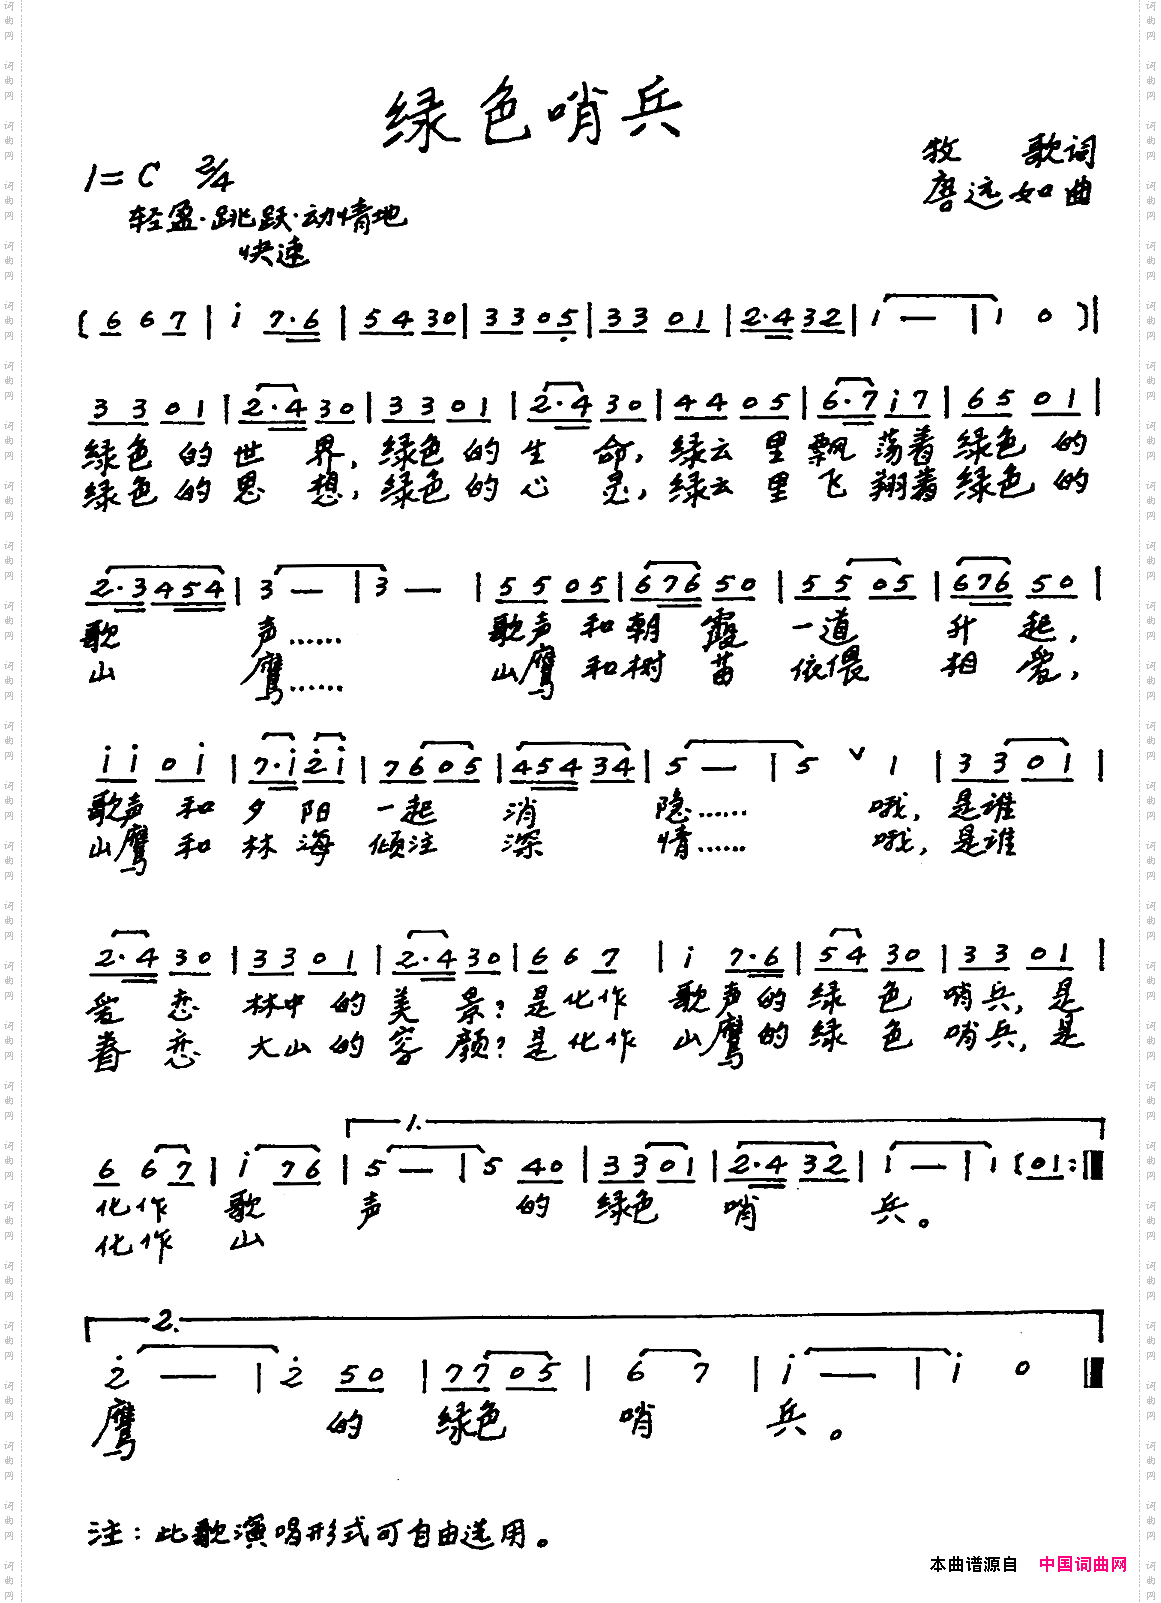 绿色哨兵
1=C 2/4
牧 歌词
唐远如曲
轻盈·跳跃·动情地
快速
( 6 6 7 | i 7·6 | 5 4 3 0 | 3 3 0 5 | 3 3 0 1 | 2·4 3 2 | 1 — | 1 0 ) |
3 3 0 1 | 2·4 3 0 | 3 3 0 1 | 2·4 3 0 | 4 4 0 5 | 6·7 i 7 | 6 5 0 1 |
绿色 的 世 界, 绿色 的 生 命, 绿云 里 飘 荡着 绿色 的
绿色 的 思 想, 绿色 的 心 灵, 绿云 里 飞 翔着 绿色 的
2·3 4 5 4 | 3 — | 3 — | 5 5 0 5 | 6 7 6 5 0 | 5 5 0 5 | 6 7 6 5 0 |
歌 声…… 歌声 和 朝 霞 一道 升 起,
山 鹰…… 山鹰 和 树 苗 依偎 相 爱,
i i 0 i | 7·i 2 i | 7 6 0 5 | 4 5 4 3 4 | 5 — | 5 ∨ 1 | 3 3 0 1 |
歌声 和 夕 阳 一起 消 隐…… 哦, 是谁
山鹰 和 林 海 倾注 深 情…… 哦, 是谁
2·4 3 0 | 3 3 0 1 | 2·4 3 0 | 6 6 7 | i 7·6 | 5 4 3 0 | 3 3 0 1 |
爱 恋 林中 的 美 景? 是化作 歌声的 绿 色 哨兵, 是
眷 恋 大山 的 容 颜? 是化作 山鹰的 绿 色 哨兵, 是
1.
6 6 7 | i 7 6 | 5 — | 5 4 0 | 3 3 0 1 | 2·4 3 2 | 1 — | 1 ( 0 1 :‖
化作 歌 声 的 绿色 哨 兵。
化作 山
2.
2 — | 2 5 0 | 7 7 0 5 | 6 7 | i — | i 0 ‖
鹰 的 绿色 哨 兵。
注:此歌演唱形式可自由选用。
本曲谱源自 中国词曲网